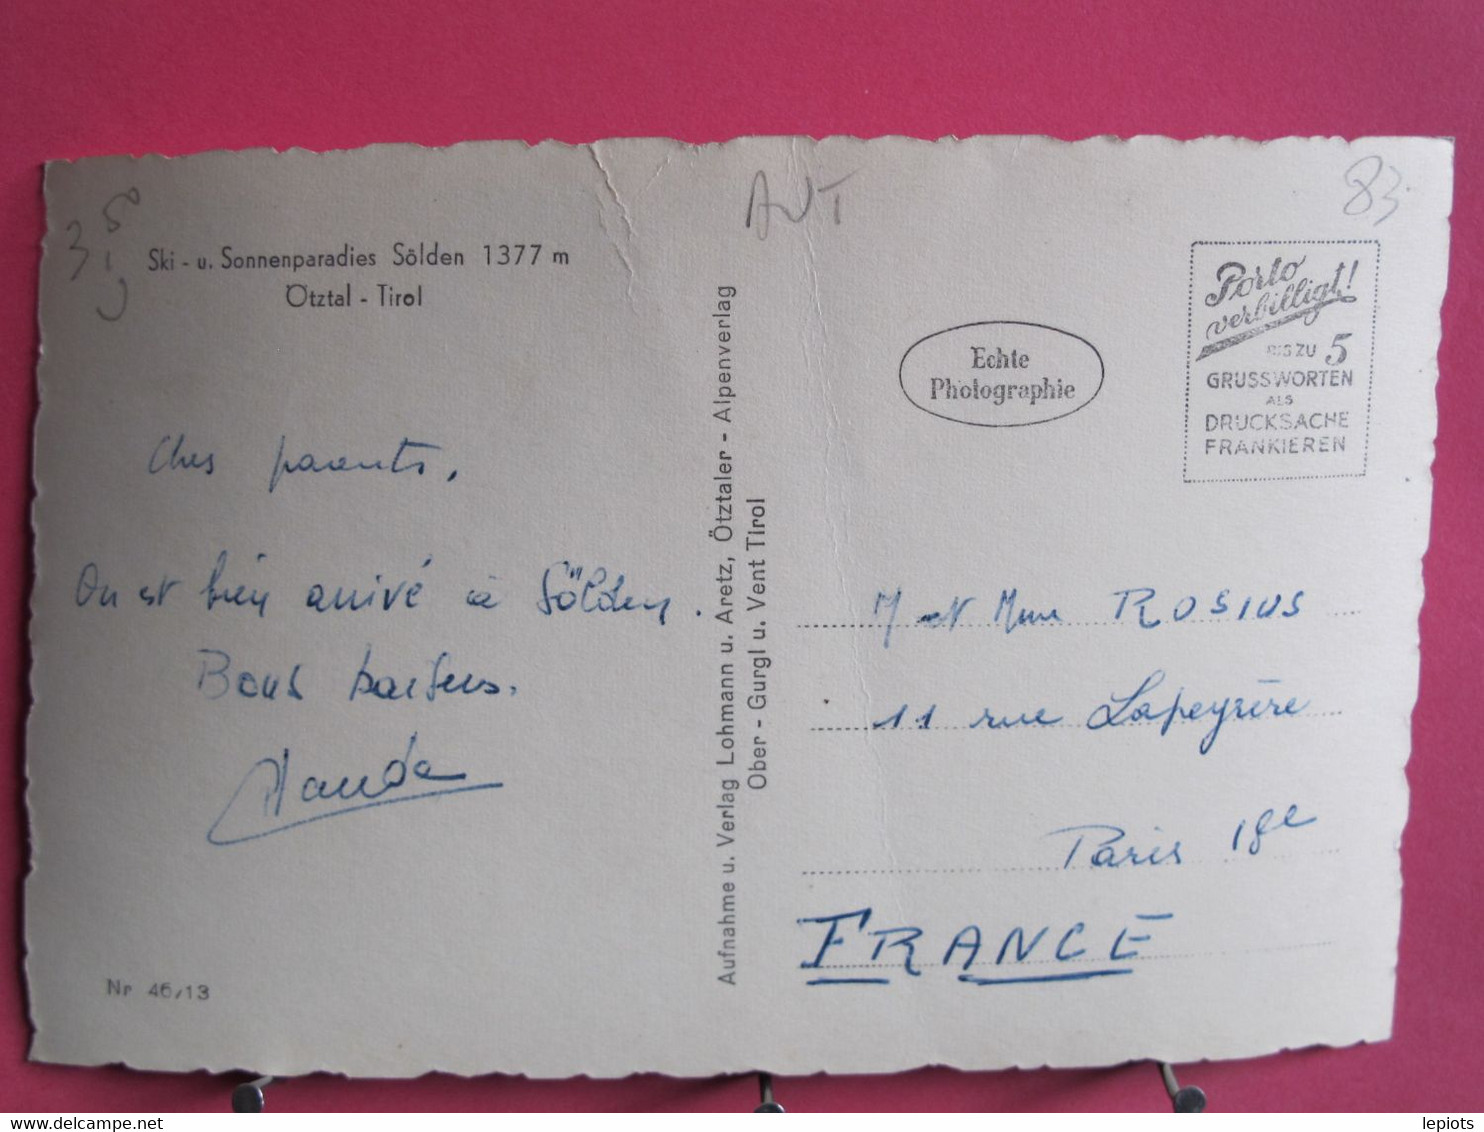 AUT
83
Ski - u. Sonnenparadies Sölden 1377 m
Ötztal - Tirol
Porto
verbilligt!
BIS ZU 5
GRUSSWORTEN
ALS
DRUCKSACHE
FRANKIEREN
Echte
Photographie
Chers parents,
On est bien arrivé à Sölden.
Bons baisers.
Aufnahme u. Verlag Lohmann u. Aretz, Ötztaler - Alpenverlag
Ober - Gurgl u. Vent Tirol
M et Mme ROSIUS
11 rue Lapeyrère
Paris 18e
FRANCE
Nr 46/13
delcampe.net
lepiots